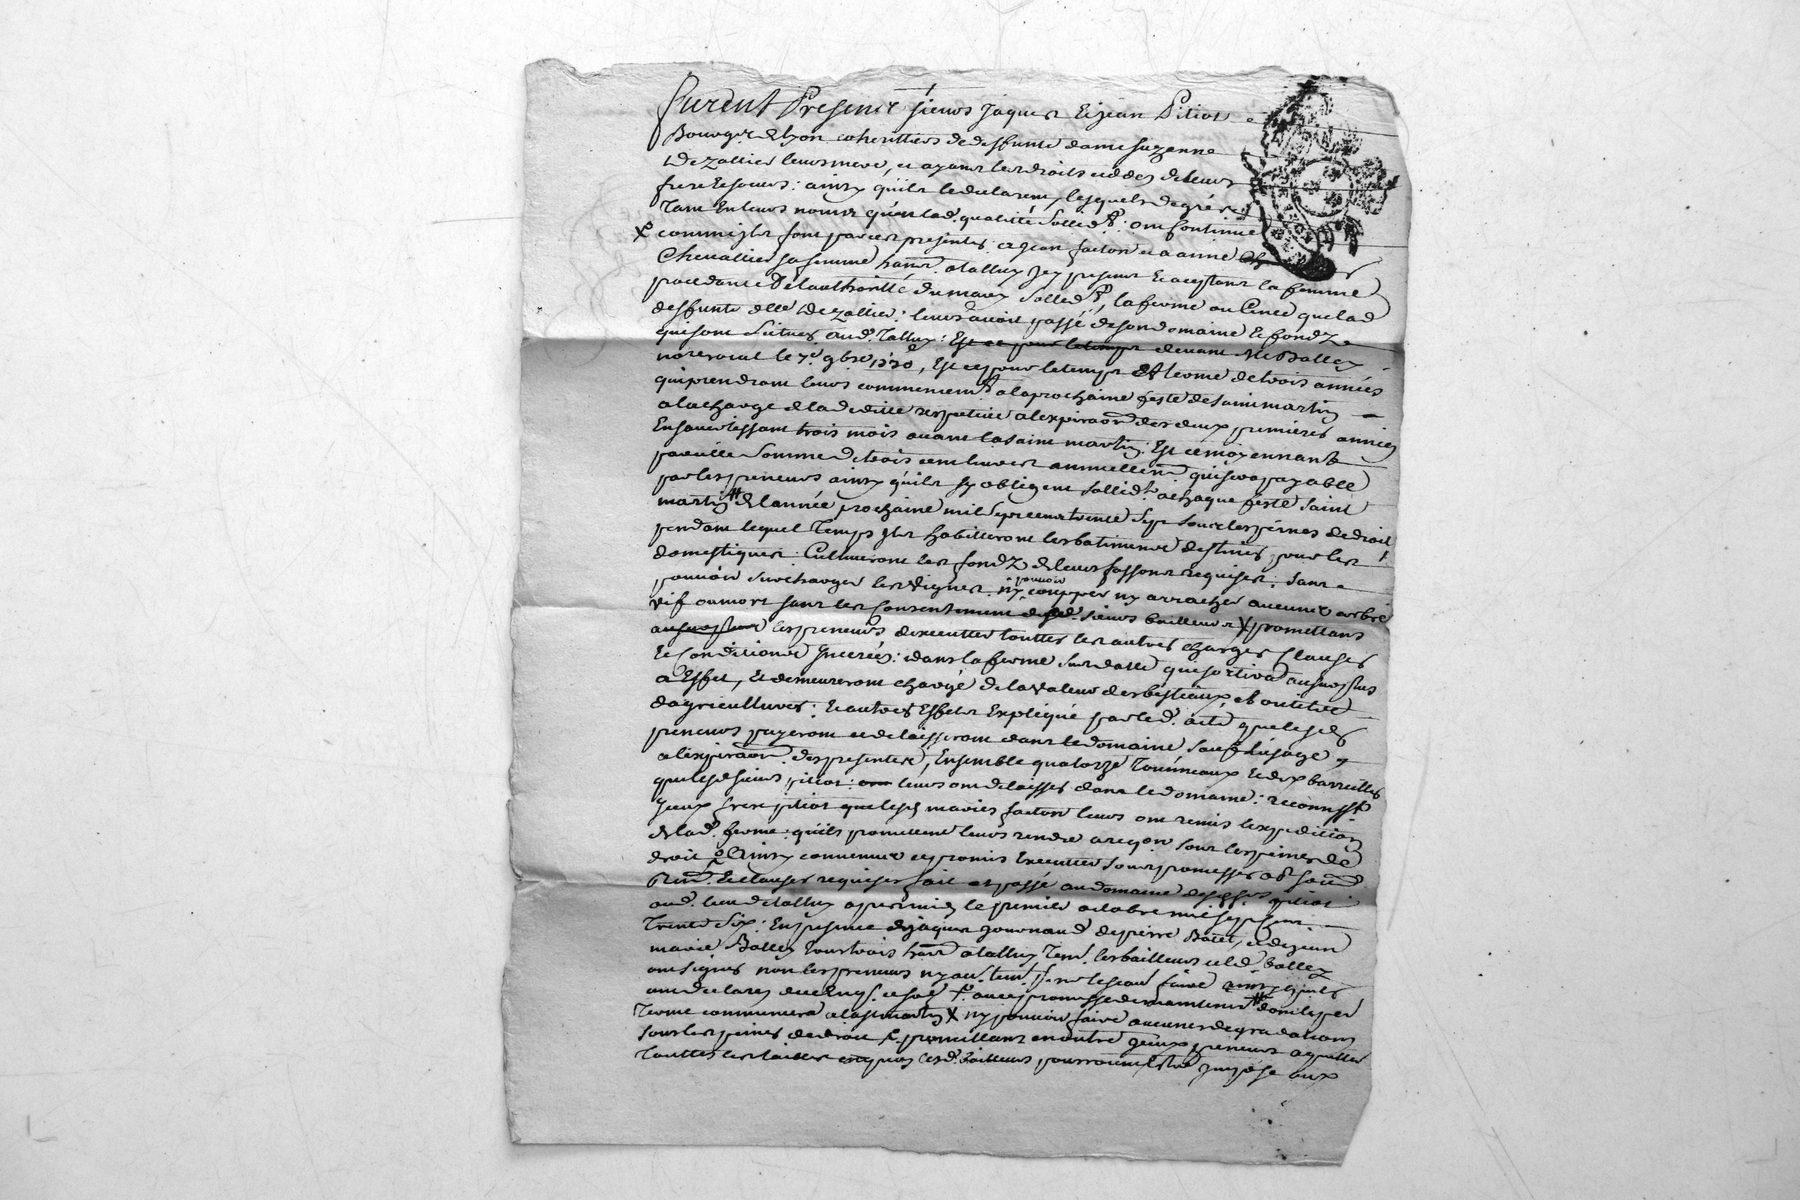 furent Presents sieurs Jaques Et jean Pitiot
Bourgs. de Lyon coherittiers de deffunte dame suzanne
De zallier leur mere, et ayant les droits cedés de leurs
frere Et soeurs: ainsy quils le declarent, lesquels de gré
tant En leurs noms qu'en lad. qualité sollidt. ont continué
commils font par ces presentes a jean facton et a anne
Chevallier sa femme habts. a talluy Jcy present Et aceptant la femme
procedante De l'authoritté du mary sollidt, la ferme que lad
deffunte dlle De zallier: leurs avoit passé de son domaine Et fondz
qui sont scitués aud. Talluy: devant Me Ballez
notre roial le 7e. 9bre 1730, Est ce pour le temps Et terme de trois années
qui prendront leurs commencemt a la prochaine feste de saint martin
a la charge de la deditte respective a l'expiraon des deux premieres années
En s'avertissant trois mois avant la saint martin: Est ce moyennant
pareille somme de trois cent livres annuellemt. qui sera payable
par les preneurs ainsy quils sy obligent sollidt. a chaque feste saint
martin de l'année prochaine mil sept cent trente sept sous les peines de droit
pendant lequel Temps jls habitteront les batiments destinés pour les
domestiques: Cultiveront les fondz de leurs fassons requises: sans
pouvoir surcharger les vignes, ny pouvoir coupper ny arracher aucuns arbre
vif ou mort sans les Consentement desd. sieurs bailleurs X promettans
les preneurs d'executter touttes les autres charges clauses
Et Conditions Jnserés: dans la ferme sus datté qui sortira
a Effet, Et demeureront chargé de la valeur des béstiaux, et outils
dagricultures: Et autres Effets Expliqué par led. acte que lesds
preneurs payeront et delaisseront dans le domaine sauf l'usage
a l'expiraon. des presentes, Ensemble quatorze Tonneaux Et dix barrilles
que lesd sieurs pitiot: leurs ont delaissés dans le domaine: reconnisst
yceux srs pitiot que lesd mariés facton leurs ont remis l'expedition
de lad. ferme: quils promettent leurs rendre a reqon sous les peines de
droit Ainsy convenu et promis Executter sous promesses obt.
Renon. Et clauses requises fait et passé au domaine desd srs pitiot
aud. lieu de talluy apres midy le premier octobre mil sept cent
trente six: En presence de jaques journaud de pierre Batet, et de jean
marie Ballez tous trois habts a talluy Tem. les bailleurs et led Ballez
ont signés non les preneurs ny autres tem. pour ne le scavoir faire ainsy quils
ont declarez de ce Enquis. avec promesse de maintenir dont le per
terme commencera a la st martin X ny pouvoir faire aucunes degradations
sous les peines de droit promettans en outre yceux preneurs acquitter
Touttes les tailles lesd. bailleurs pourroient Estre Jmposé aux